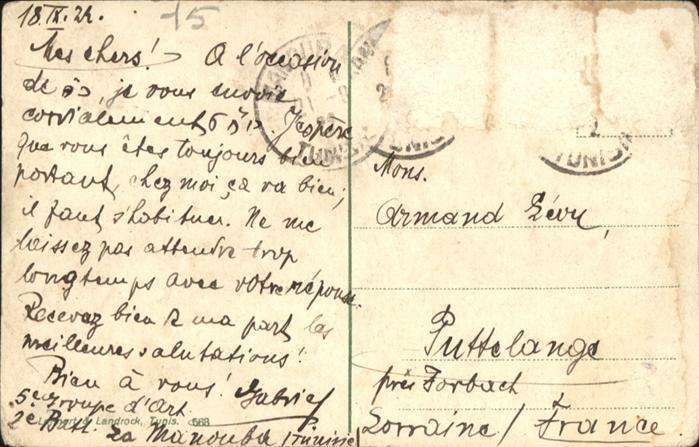 18.IX.24.
15
Mes chers! A l'occasion
de ר״ה, je vous envoie
cordialement. J'espère
que vous êtes toujours bien
portant, chez moi ça va bien;
il faut s'habituer. Ne me
laissez pas attendre trop
longtemps avec votre réponse.
Recevez bien de ma part les
meilleures salutations!
Bien à vous! Gabriel
5e Groupe d'Art.
2e Batt. La Manouba / Tunisie
Lehnert & Landrock, Tunis. 568
Mons.
Armand Lévy,
Puttelange
près Forbach
Lorraine / France
TUNISIE
TUNISIE